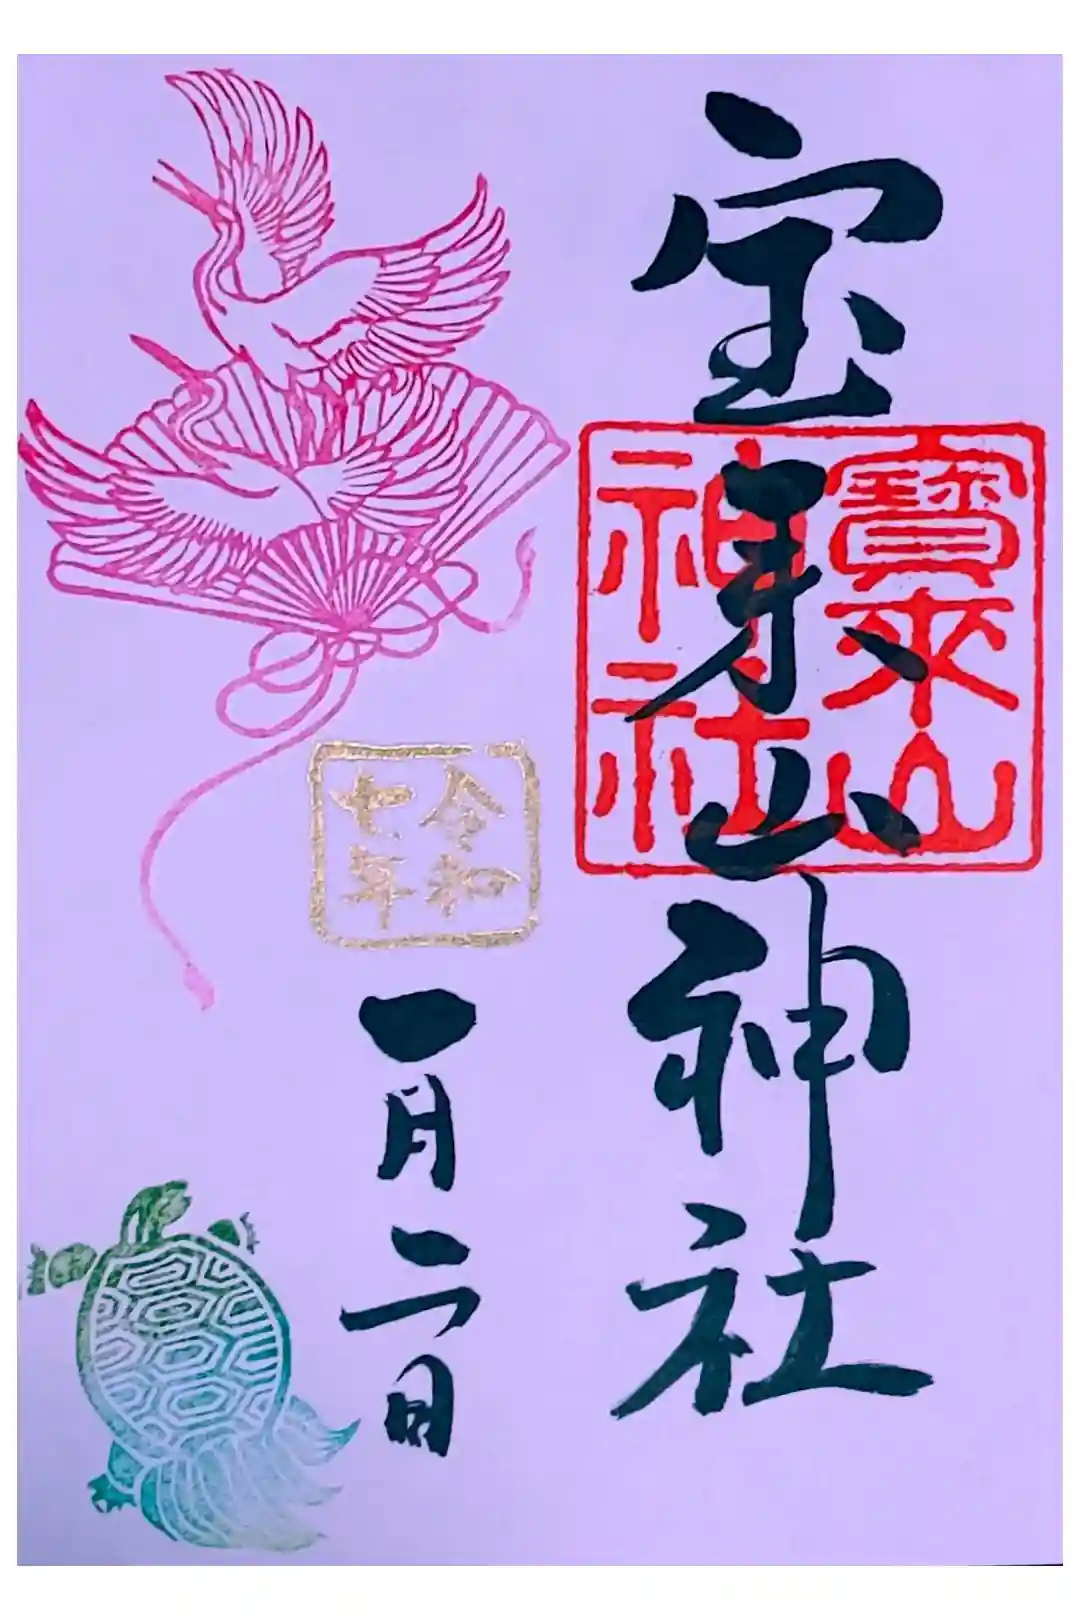 宝来山神社
寳來山
神社
令和
七年
一月二日